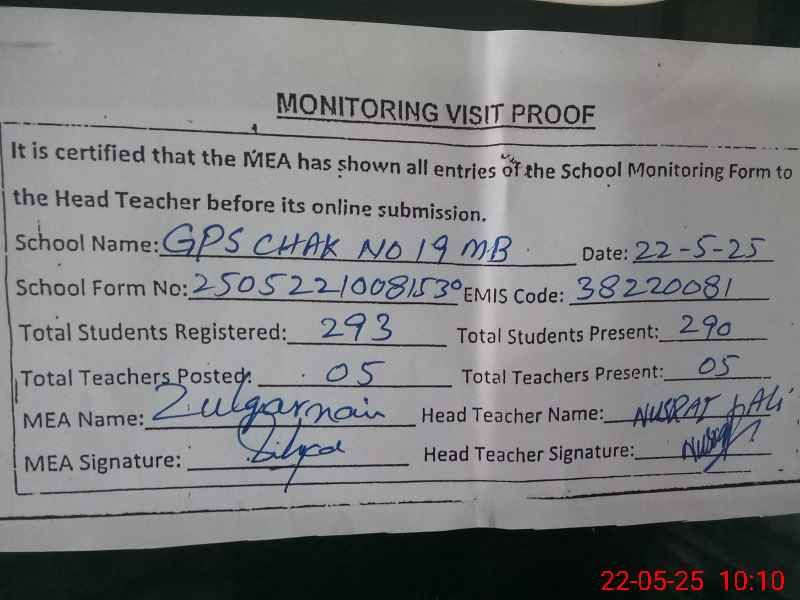 MONITORING VISIT PROOF
It is certified that the MEA has shown all entries of the School Monitoring Form to
the Head Teacher before its online submission.
School Name: GPS CHAK NO 19 MB Date: 22-5-25
School Form No: 25052210081530 EMIS Code: 38220081
Total Students Registered: 293 Total Students Present: 290
Total Teachers Posted: 05 Total Teachers Present: 05
MEA Name: Zulqarnain Head Teacher Name: NUSRAT
MEA Signature: Head Teacher Signature:
22-05-25 10:10